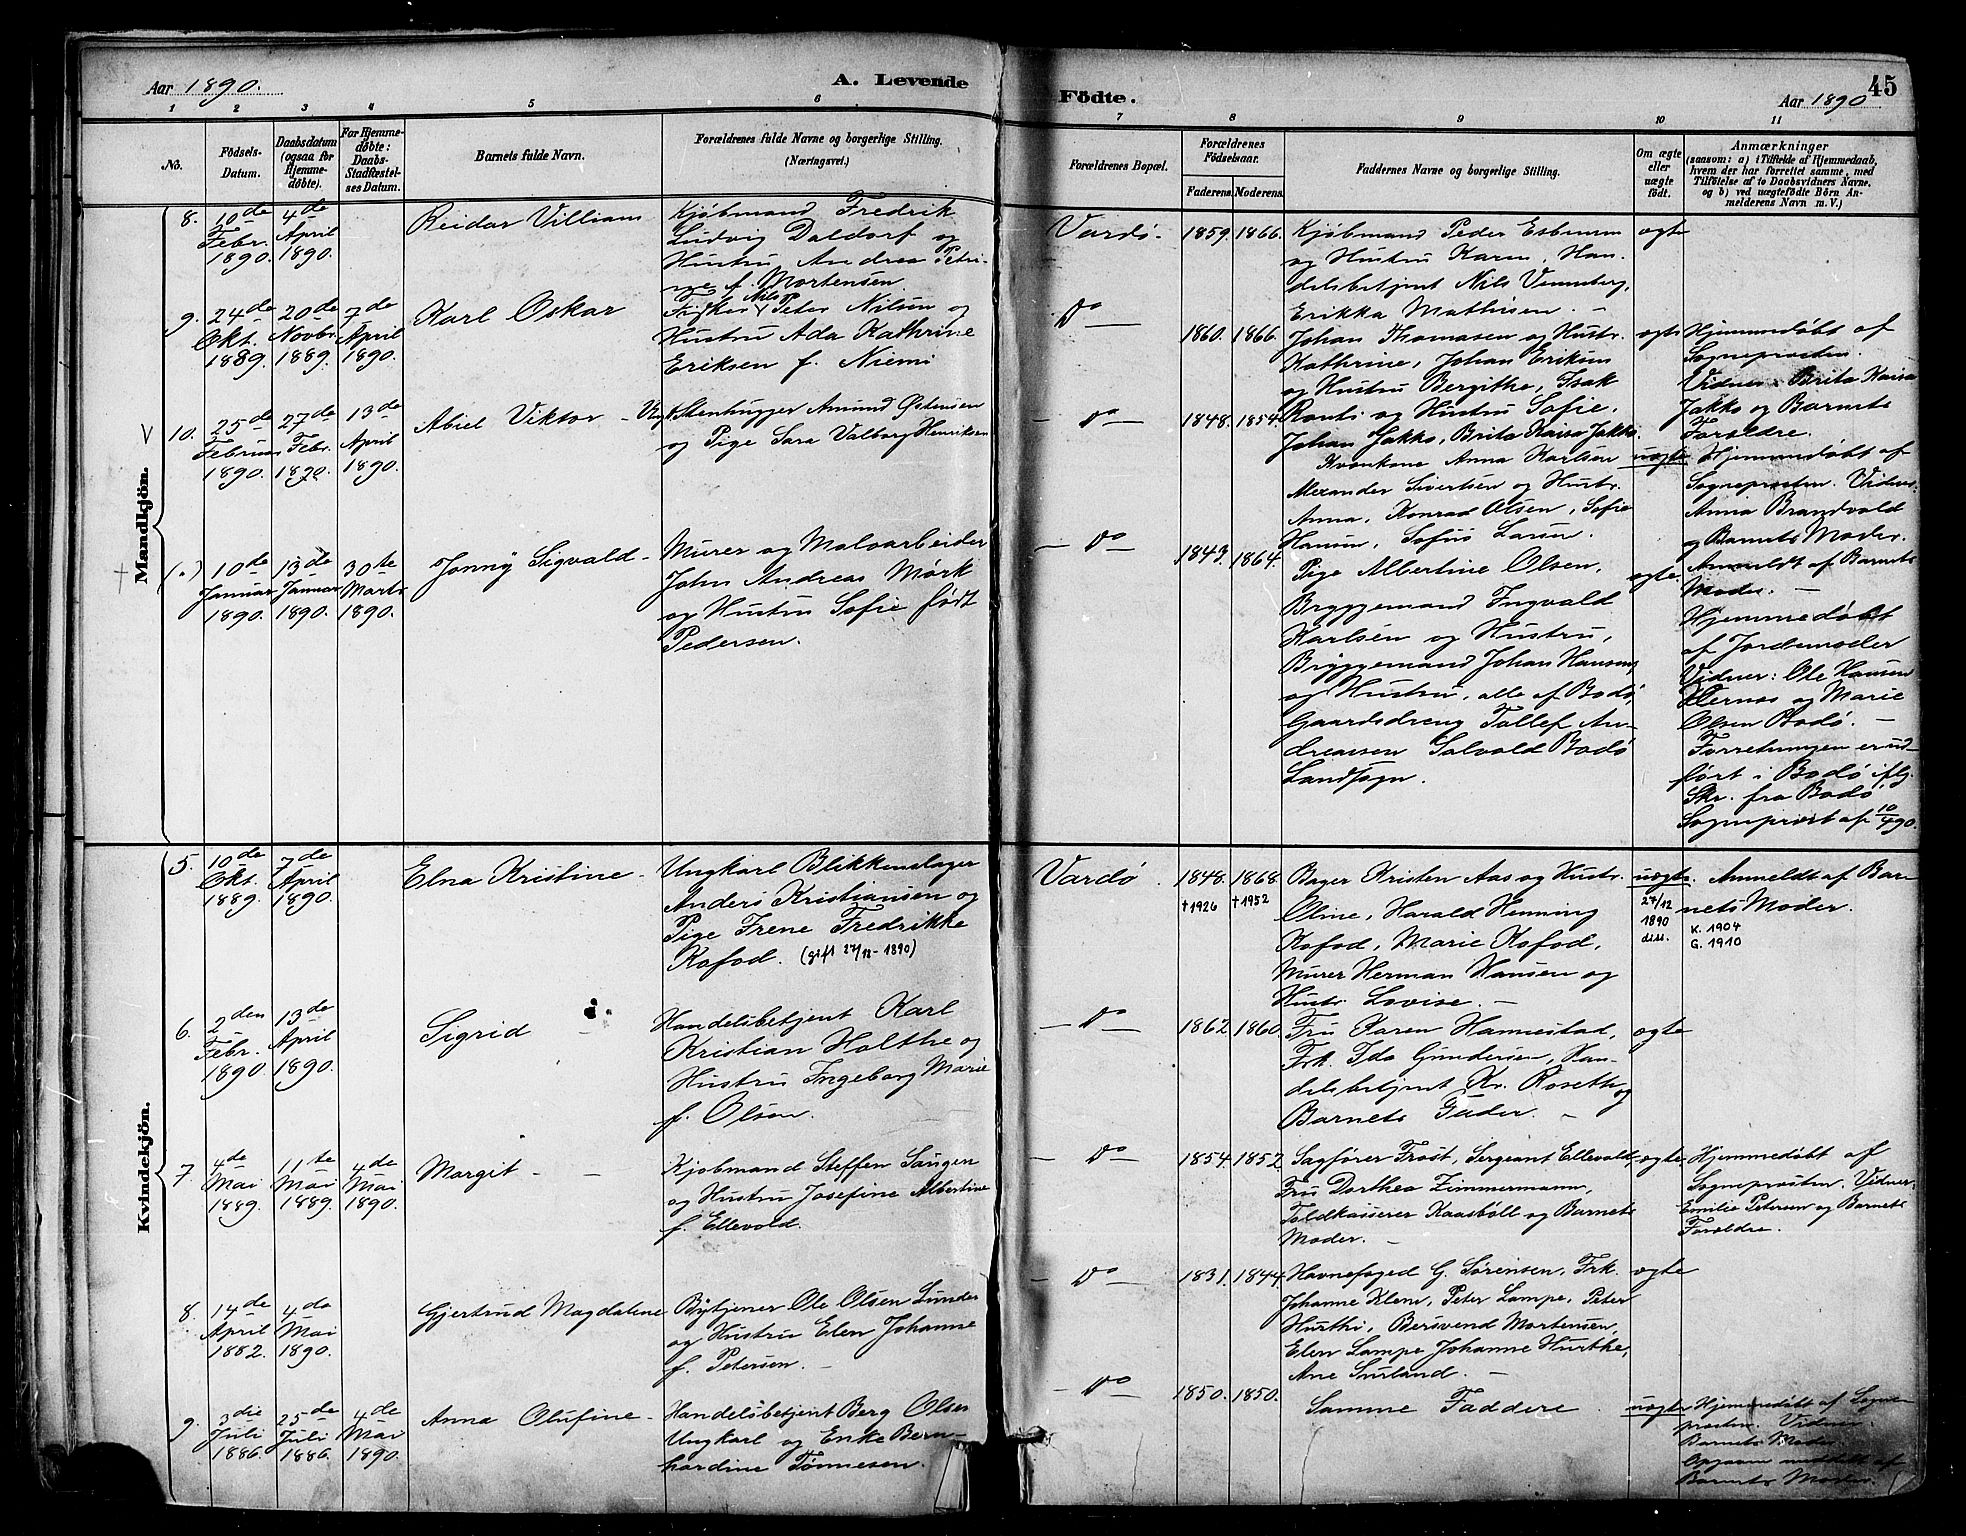 Aar 1890.
A. Levende
1 2 3 4 5 6
No.
Födsels-
Datum.
Daabsdatum
(ogsaa for
Hjemme-
döbte).
For Hjemme-
döbte:
Daabs-
Stadfæstel-
ses Datum.
Barnets fulde Navn.
Forældrenes fulde Navne og borgerlige Stilling.
(Næringsvei.)
Mandkjön.
8.
10de
Febr.
1890.
4de
April
1890.
Reidar Villiam
Kjøbmand Fredrik
Ludvig Daldorf og
Hustru Andrea Petri-
ne f. Mortensen
9.
24de
Okt.
1889.
20de
Novbr.
1889.
7de
April
1890.
Karl Oskar
Fisker Nils Peter Nilsen og
Hustru Ada Kathrine
Eriksen f. Niemi
V
10.
25de
Februar
1890.
27de
Febr.
1890.
13de
April
1890.
Abiel Viktor -
Ungk. Stenhugger Amund Østensen
og Pige Sara Valborg Henriksen
+
(0)
10de
Januar
1890.
13de
Januar
1890.
30te
Marts
1890.
Jonny Sigvald -
Murer og Malerarbeider
John Andreas Mørk
og Hustru Sofie født
Pedersen.
Kvindekjön.
5.
10de
Okt.
1889.
7de
April
1890.
Elna Kristine -
Ungkarl Blikkenslager
Anders Kristiansen og
Pige Irene Fredrikke
Kofod. (gift 27/12-1890)
6.
2den
Febr.
1890
13de
April
1890.
Sigrid -
Handelsbetjent Karl
Kristian Holthe og
Hustru Ingeborg Marie
f. Olsen.
7.
4de
Mai
1889.
11te
Mai
1889.
4de
Mai
1890.
Margit - -
Kjøbmand Steffen Saugen
og Hustru Josefine Albertine
f. Ellevold.
8.
14de
April
1882.
4de
Mai
1890.
Gjertrud Magdalene
Bytjener Ole Olsen Lunde
og Hustru Elen Johanne
f. Petersen. -
9.
3die
Juli
1886.
25de
Juli
1886.
4de
Mai
1890.
Anna Olufine -
Handelsbetjent Berg Olsen
Ungkarl og Enke Bern-
hardine Tønnesen.
Födte.
45
Aar 1890
7 8 9 10 11
Forældrenes Bopæl.
Forældrenes
Födselsaar.
Faderens. Moderens.
Faddernes Navne og borgerlige Stilling.
Om ægte
eller
uægte
födt.
Anmærkninger
(saasom: a) i Tilfælde af Hjemmedaab,
hvem der har forrettet samme, med
Tilföielse af to Daabsvidners Navne,
og b) ved uægtefödte Börn An-
melderens Navn m. V.)
Vardø.
1859. 1866.
Kjøbmand Peder Esbensen
og Hustru Karen, Han-
delsbetjent Nils Venneberg,
Erikka Mathisen. -
ægte
Do
1860. 1866.
Johan Thomasen og Hustr.
Kathrine, Johan Eriksen
og Hustru Bergithe, Isak
Ranti og Hustru Sofie,
Johan Jakko, Brita Kaisa Jakko.
ægte
Hjemmedøbt af
Sognepresten.
Vidner: Brita Kaisa
Jakko og Barnets
Forældre.
- Do -
1848. 1854.
Kvænkone Anna Karlsen
Alexander Sivertsen og Hustr.
Anna, Konrad Olsen, Sofie
Hansen, Sofus Larsen.
uægte
Hjemmedøbt af
Sognepresten. Vidner:
Anna Brandvold
og Barnets Moder.
Anmeldt af Barnets
Moder. -
- Do -
1843. 1864.
Pige Albertine Olsen,
Bryggemand Ingvald
Karlsen og Hustru,
Bryggemand Johan Hansen
og Hustru, alle af Bodø,
Gaardsdreng Tollef An-
dreassen Salvold Bodø
Landsogn.
ægte.
Hjemmedøbt
af Jordemoder
Vidner: Ole Hansen
Hernes og Marie
Olsen Bodø. -
Forretningen er ud-
ført i Bodø iflg.
Skr. fra Bodø
Sogneprest af 10/4 90.
Vardø.
1848. 1868.
†1926 †1952
Bager Kristen Aas og Hustr.
Oline, Harald Henning
Kofod, Marie Kofod,
Murer Herman Hansen og
Hustr. Lovise. -
uægte.
27/12
1890
diss.
Anmeldt af Bar-
nets Moder.
K. 1904
G. 1910
- Do -
1862. 1860.
Fru Karen Hannestad,
Frk. Ida Gundersen, Han-
delsbetjent Kr. Roseth og
Barnets Fader. -
ægte
- Do -
1854. 1852
Sagfører Frost, Sergeant Ellevold,
Fru Dorthea Zimmermann,
Toldkasserer Kaasbøll og Barnets
Moder. -
ægte
Hjemmedøbt af
Sognepresten. Vidner:
Emilie Petersen og Barnets
Forældre.
- Do -
1831. 1844.
Havnefoged G. Sørensen, Frk.
Johanne Klem, Peter Lampe, Peter
Hurthi, Bersvend Mortensen,
Elen Lampe, Johanne Hurthe,
Ane Surland. -
ægte
- Do -
1850. 1850.
Samme Faddere.
uægte
Hjemmedøbt af Sogne-
presten. Vidner:
Barnets Moder.
Opgaven meddelt af
Barnets Moder.